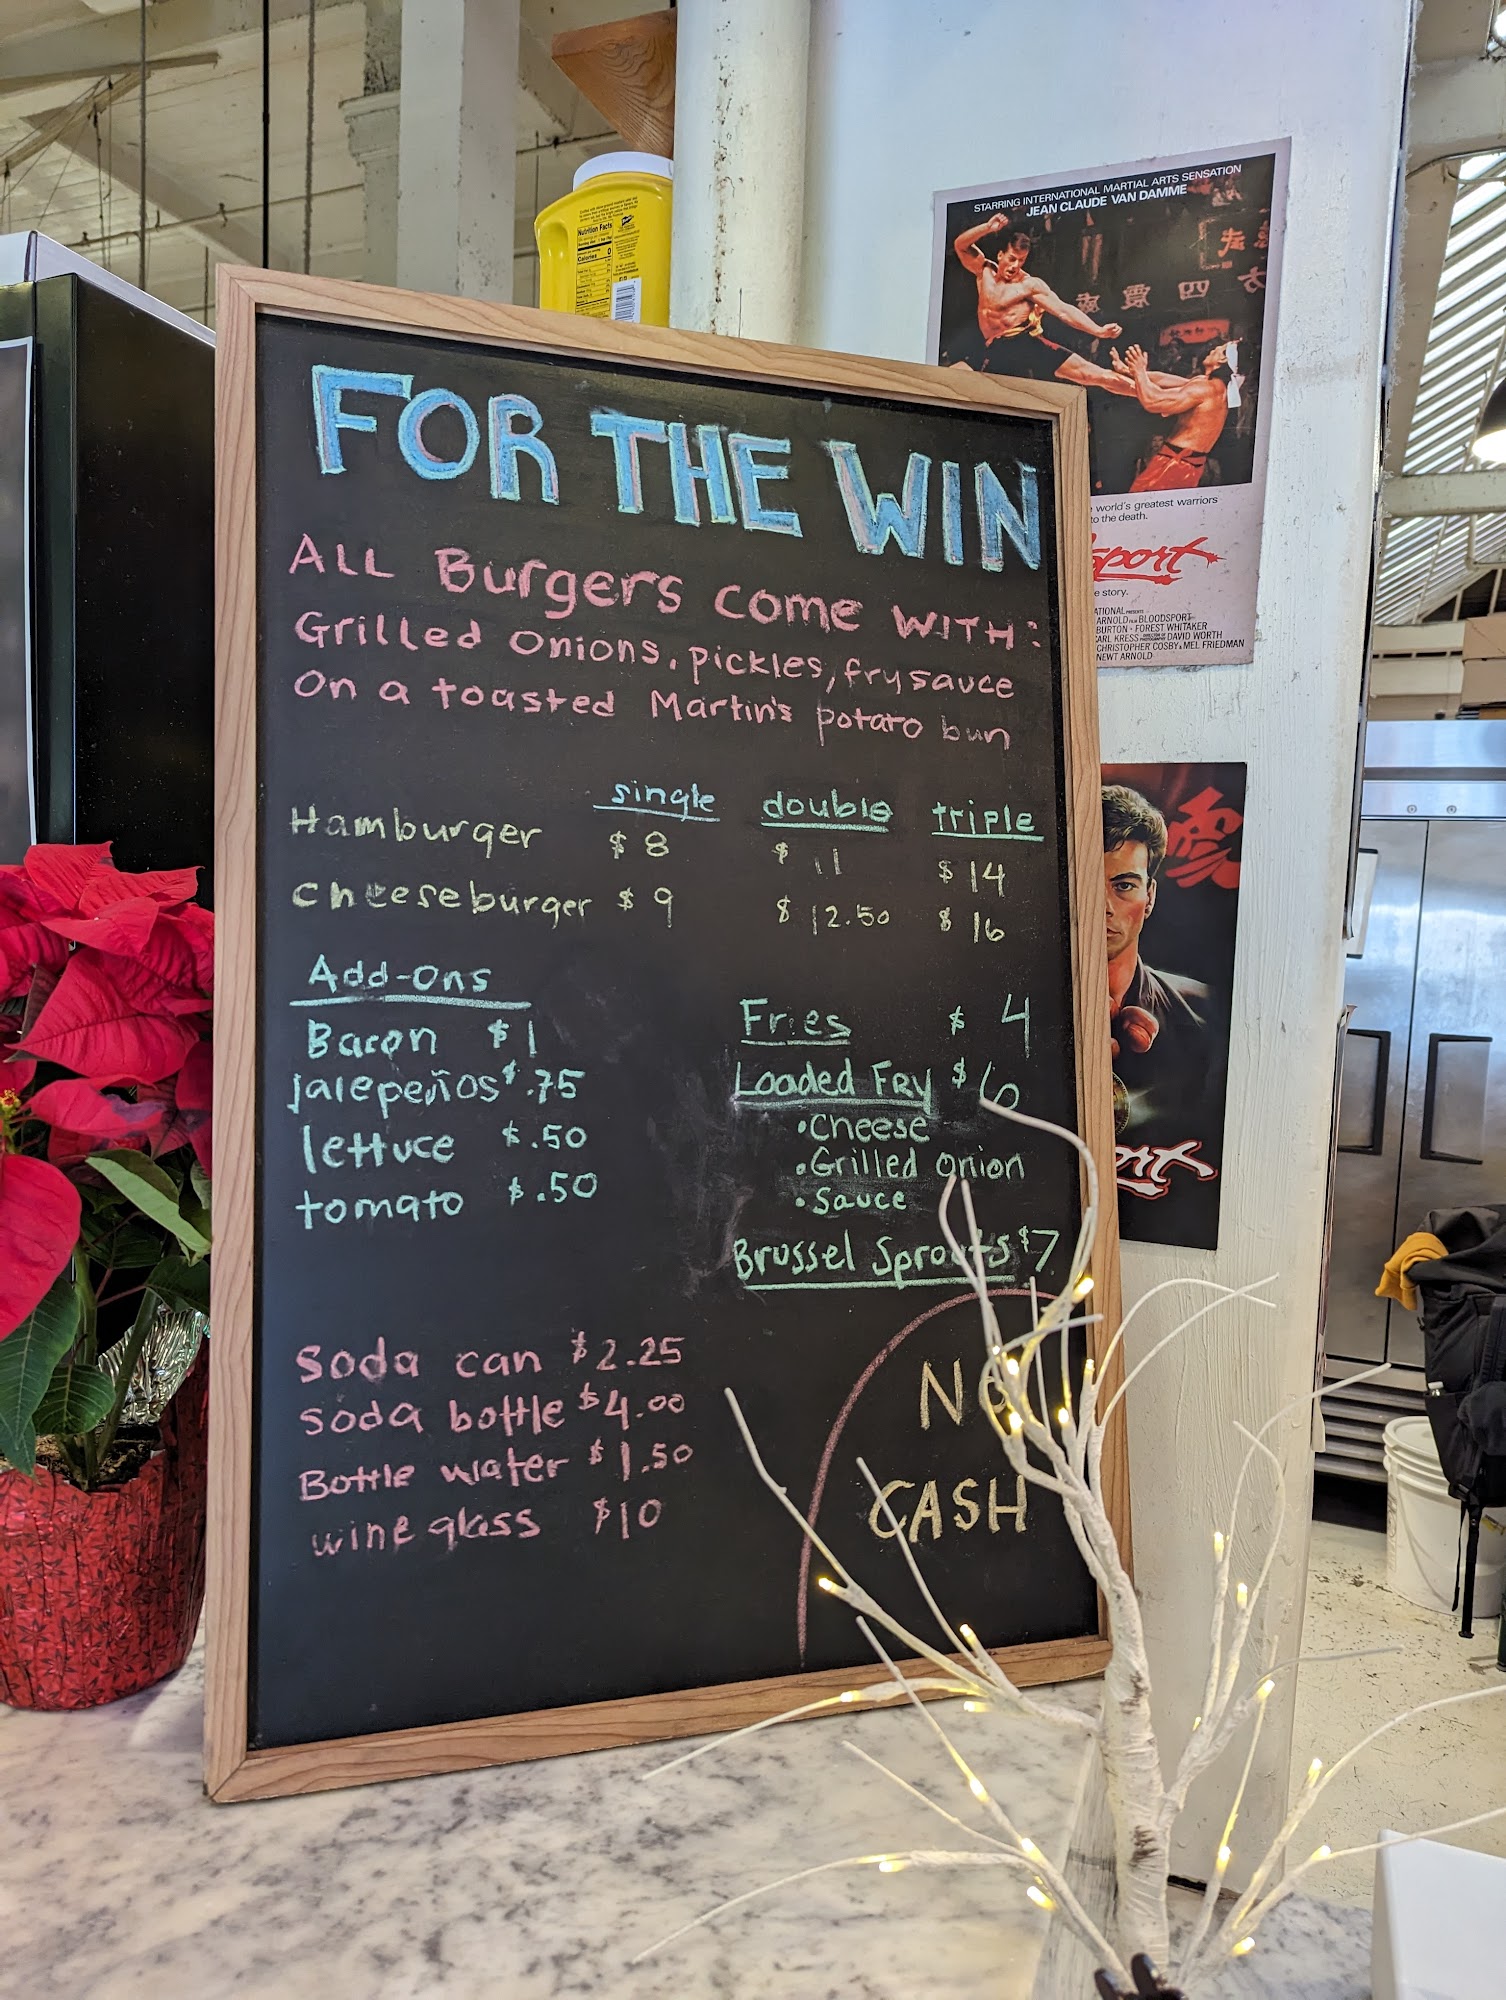 FOR THE WIN
ALL Burgers come WITH:
Grilled onions, pickles, fry sauce
On a toasted Martin's potato bun
single double triple
Hamburger $8 $11 $14
cheeseburger $9 $12.50 $16
Add-Ons
Bacon $1
Jalepeños $.75
lettuce $.50
tomato $.50
Fries $4
Loaded FRY $6
•Cheese
•Grilled onion
•Sauce
Brussel Sprouts $7
Soda can $2.25
Soda bottle $4.00
Bottle water $1.50
wine glass $10
NO
CASH
Nutrition Facts
Calories 0
STARRING INTERNATIONAL MARTIAL ARTS SENSATION
JEAN CLAUDE VAN DAMME
world's greatest warriors
to the death.
sport
e story.
ARNOLD BLOODSPORT
BURTON · FOREST WHITAKER
CARL KRESS DAVID WORTH
CHRISTOPHER COSBY & MEL FRIEDMAN
NEWT ARNOLD
ort